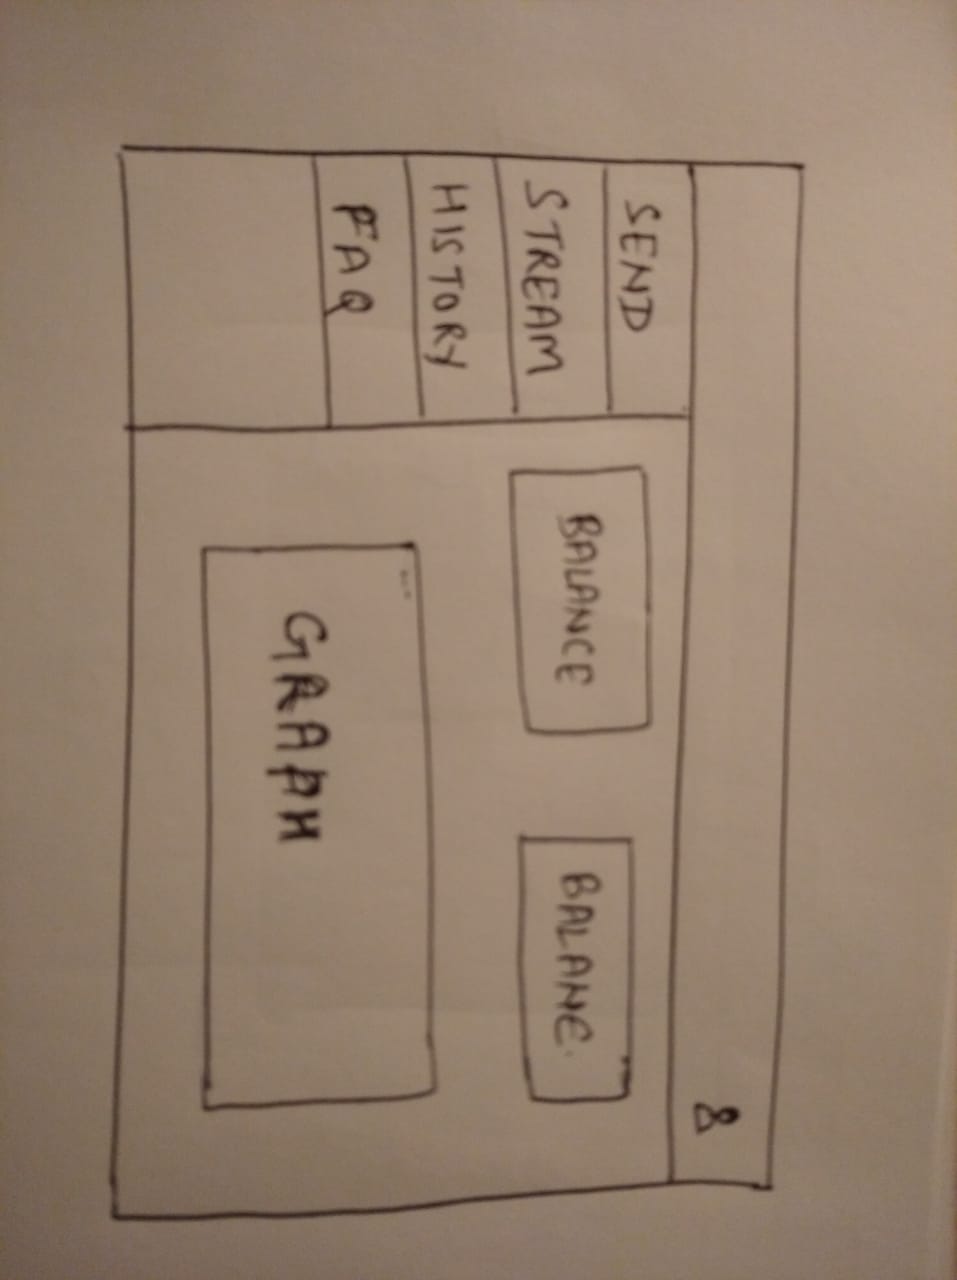 SEND
STREAM
HISTORY
FAQ
BALANCE
BALANE.
GRAPH